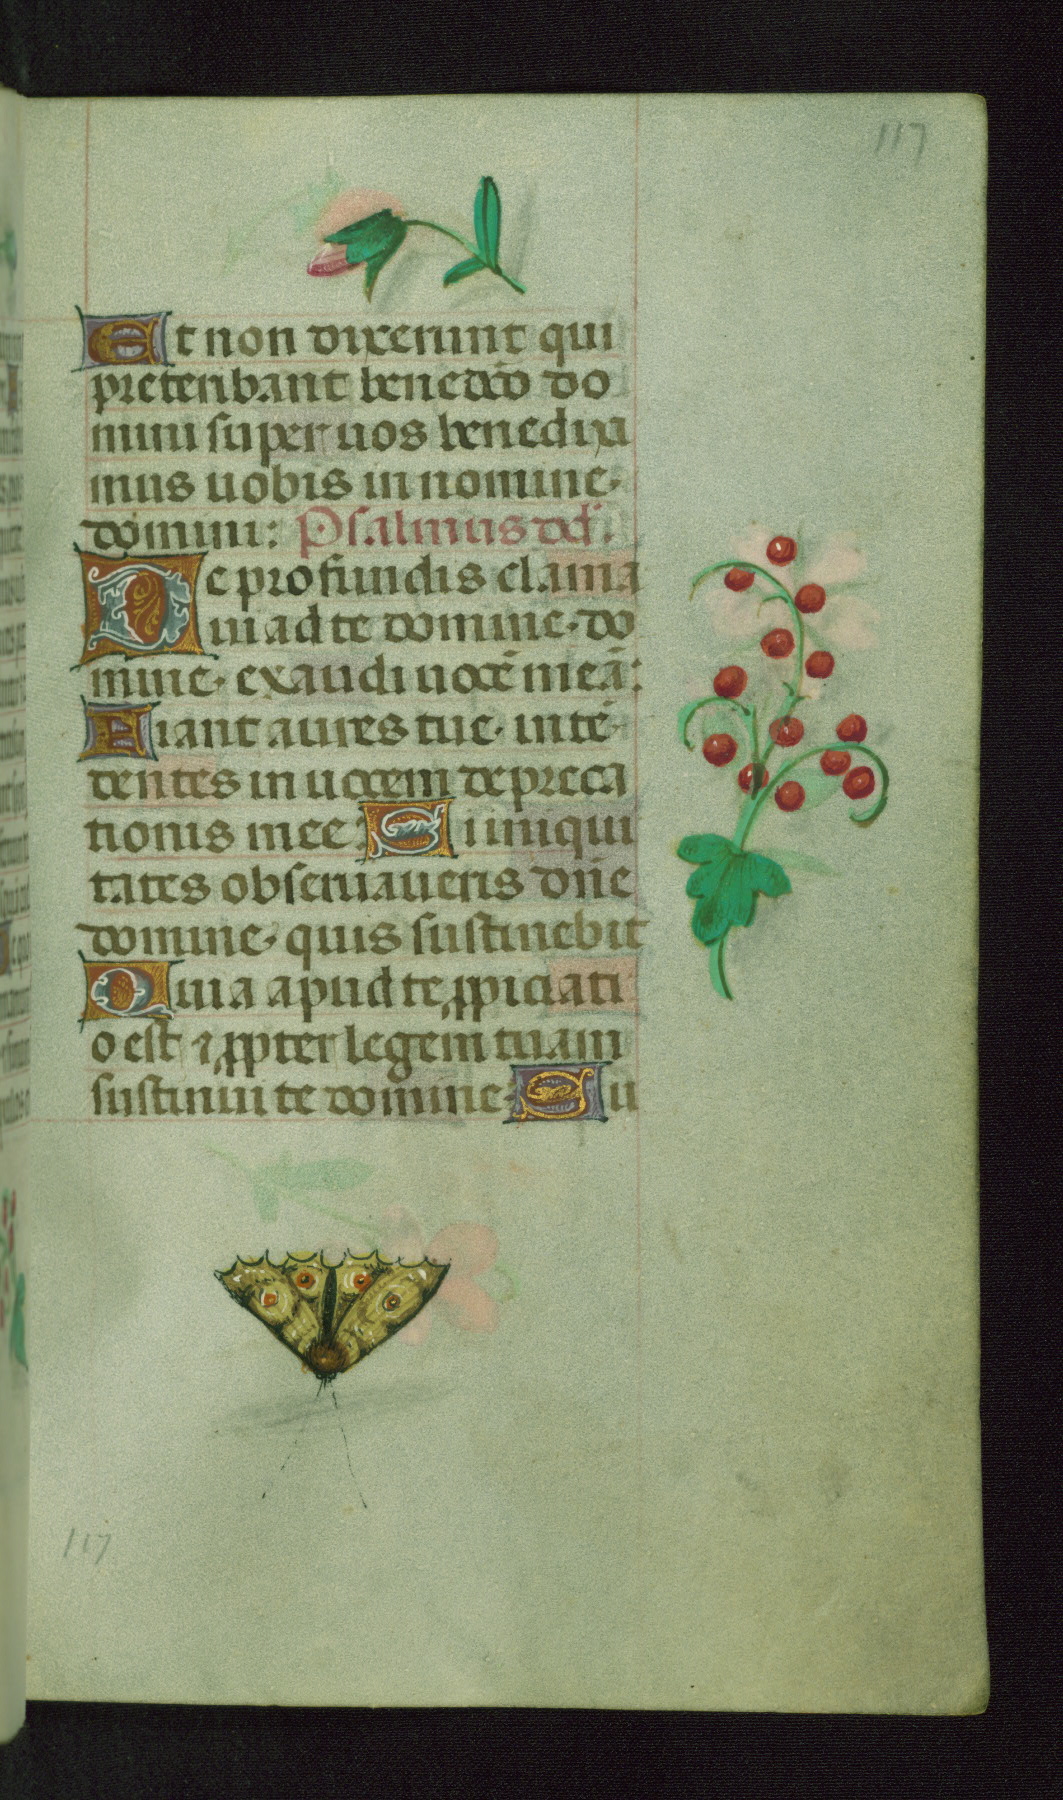 117
Et non dixerunt qui
preteribant benedcō do
mini super uos benedixi
mus uobis in nomine
domini: Psalmus dd.
De profundis clama
ui ad te domine· do
mine· exaudi uocē meā:
Fiant aures tue· intē
dentes in uocem depreca
tionis mee: Si iniqui
tates obseruaueris dn̄e
domine· quis sustinebit
Quia apud te ꝓpiciati
o est ⁊ ꝓpter legem tuam
sustinui te domine· Su
117